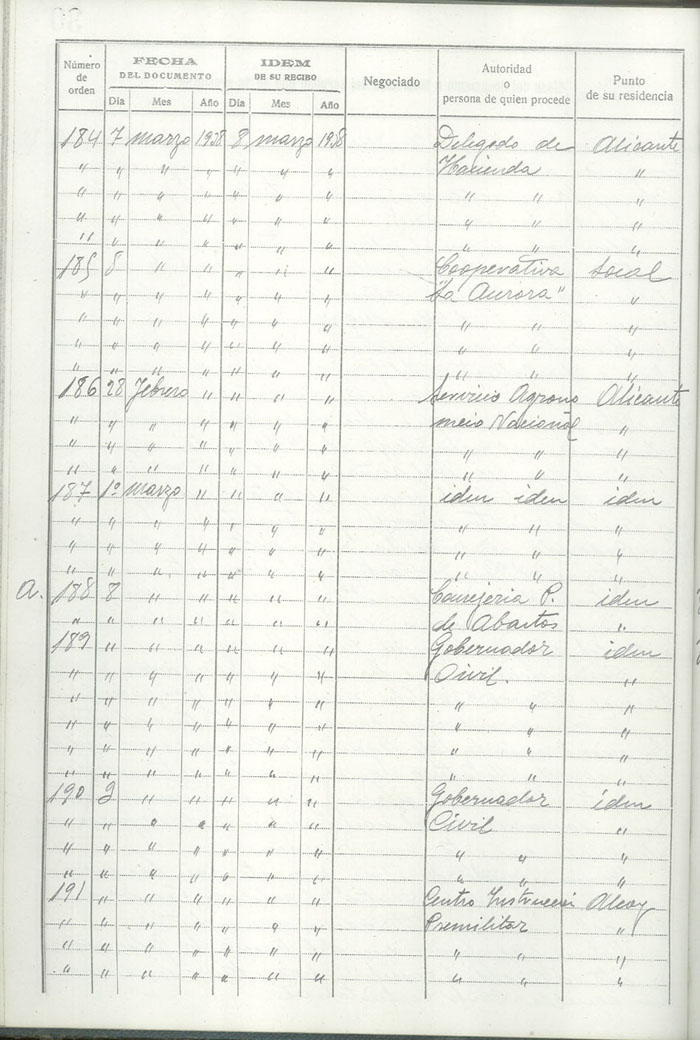 Número de orden | FECHA DEL DOCUMENTO | IDEM DE SU RECIBO | Negociado | Autoridad o persona de quien procede | Punto de su residencia
Día Mes Año Día Mes Año
184 7 marzo 1938 8 marzo 1938 Delegado de Alicante
" " " " " " " Hacienda "
" " " " " " " " " "
" " " " " " " " " "
" " " " " " " " " "
185 8 " " " " " Cooperativa Local
" " " " " " " "La Aurora" "
" " " " " " " " " "
" " " " " " " " " "
" " " " " " " " " "
186 28 Febrero " " " " Servicio Agrono Alicante
" " " " " " " mico Nacional "
" " " " " " " " " "
" " " " " " " " " "
187 1º marzo " " " " idem idem idem
" " " " " " " " " "
" " " " " " " " " "
" " " " " " " " "
a. 188 8 " " " " " Consejeria P. idem
" " " " " " " de Abastos "
189 " " " " " " Gobernador idem
" " " " " " " Civil. "
" " " " " " " " " "
" " " " " " " " " "
" " " " " " " " " "
" " " " " " " " " "
190 9 " " " " " Gobernador idem
" " " " " " " Civil "
" " " " " " " " " "
" " " " " " " " " "
191 " " " " " " Centro Instrucci Alcoy
" " " " " " " Premilitar "
" " " " " " " " " "
" " " " " " " " " "